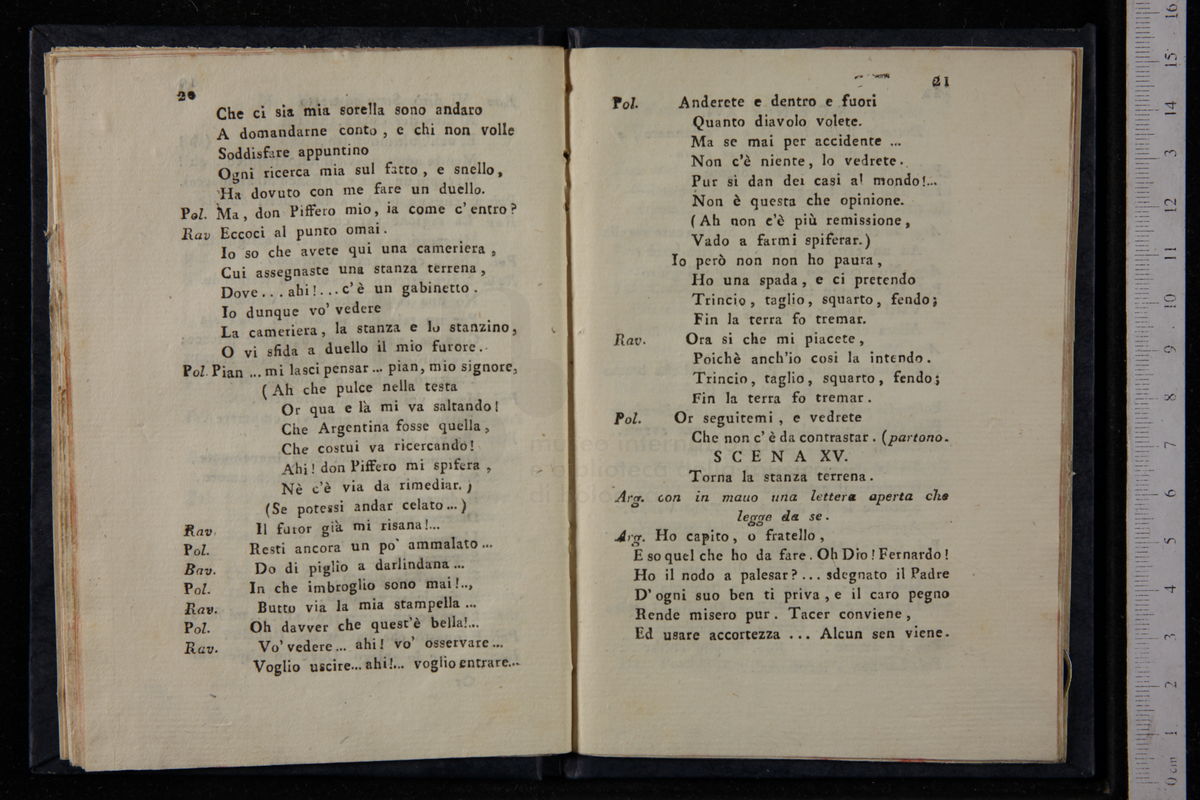 20
Che ci sia mia sorella sono andaro
A domandarne conto , e chi non volle
Soddisfare appuntino
Ogni ricerca mia sul fatto , e snello ,
Ha dovuto con me fare un duello.
Pol. Ma , don Piffero mio , ia come c' entro ?
Rav Eccoci al punto omai .
Io so che avete qui una cameriera ,
Cui assegnaste una stanza terrena ,
Dove . . . ahi ! . . . c' è un gabinetto .
Io dunque vo' vedere
La cameriera , la stanza e lo stanzino ,
O vi sfida a duello il mio furore .
Pol. Pian ... mi lasci pensar ... pian , mio signore ,
( Ah che pulce nella testa
Or qua e là mi va saltando !
Che Argentina fosse quella ,
Che costui va ricercando !
Ahi ! don Piffero mi spifera ,
Nè c'è via da rimediar. )
(Se potessi andar celato ... )
Rav. Il furor già mi risana !...
Pol. Resti ancora un po' ammalato ...
Bav. Do di piglio a darlindana ...
Pol. In che imbroglio sono mai !..,
Rav. Butto via la mia stampella ...
Pol. Oh davver che quest'è bella!...
Rav. Vo' vedere ... ahi ! vo' osservare ...
Voglio uscire... ahi !... voglio entrare...
21
Pol. Anderete e dentro e fuori
Quanto diavolo volete.
Ma se mai per accidente ...
Non c'è niente , lo vedrete .
Pur si dan dei casi al mondo !...
Non è questa che opinione.
( Ah non c'è più remissione ,
Vado a farmi spiferar. )
Io però non non ho paura ,
Ho una spada , e ci pretendo
Trincio , taglio , squarto , fendo ;
Fin la terra fo tremar.
Rav. Ora si che mi piacete ,
Poichè anch'io cosi la intendo .
Trincio , taglio , squarto , fendo ;
Fin la terra fo tremar .
Pol. Or seguitemi , e vedrete
Che non c' è da contrastar . (partono.
S C E N A XV.
Torna la stanza terrena .
Arg. con in mauo una lettera aperta che
legge da se .
Arg. Ho capito , o fratello ,
E so quel che ho da fare . Oh Dio ! Fernardo !
Ho il nodo a palesar ? . . . sdegnato il Padre
D' ogni suo ben ti priva , e il caro pegno
Rende misero pur . Tacer conviene ,
Ed usare accortezza . . . Alcun sen viene .